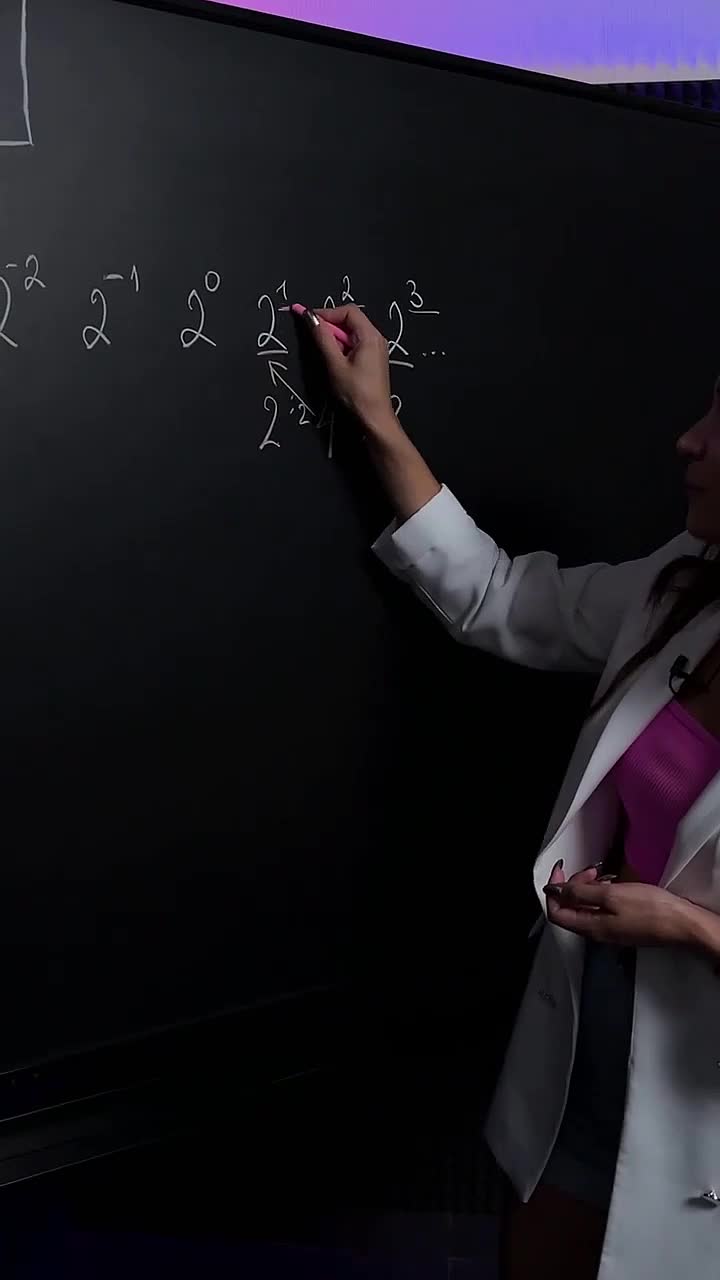 2⁻² 2⁻¹ 2⁰ 2¹ 2² 2³ ...
2 :2 4